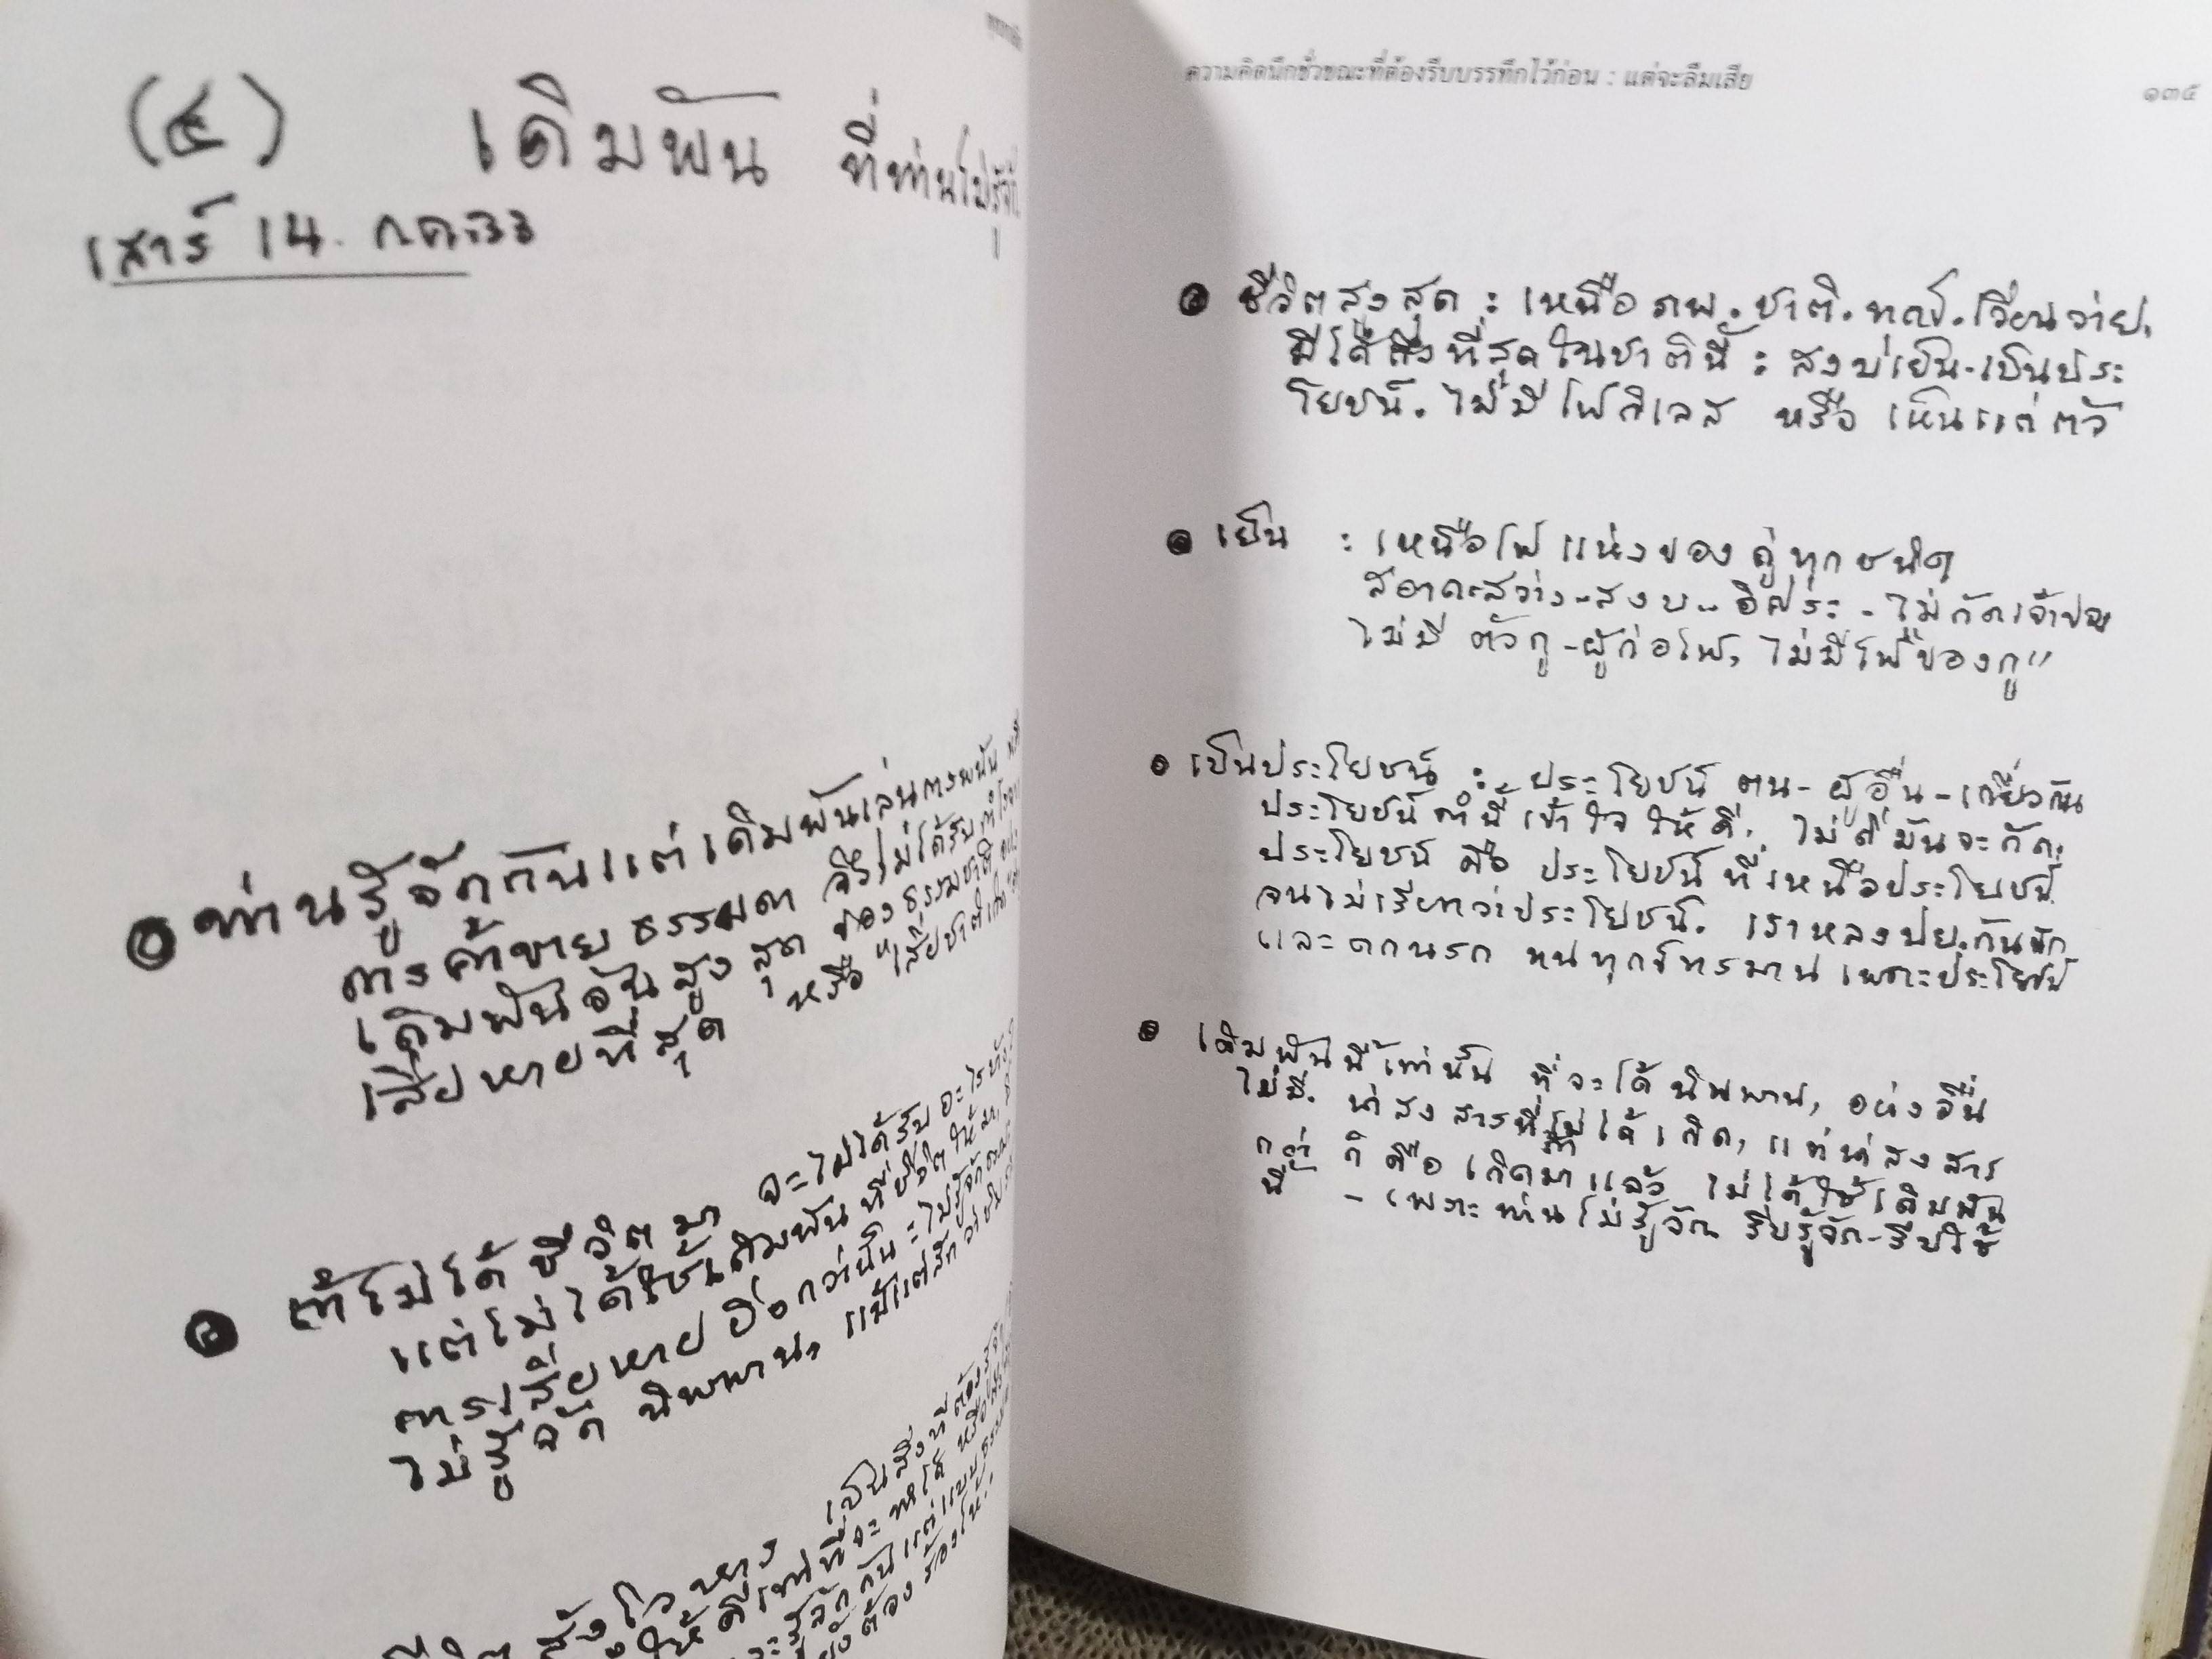 (๔) เดิมพัน ที่ท่านไม่รู้จัก
เสาร์ 14. ก.ค. 33
ท่านรู้จักกันแต่เดิมพันเล่นการพนัน
การค้าขาย ธรรมดา จึงไม่ได้รับ
เดิมพันอันสูงสุด ของธรรมชาติ
เสียหายที่สุด หรือ "เสียชาติเกิด"
ถ้าไม่ได้ชีวิตมา จะไม่ได้รับอะไร
แต่ไม่ได้ใช้เดิมพันที่ชีวิตให้มา,
การเสียหายยิ่งกว่านั้น : ไม่รู้จัก
ไม่รู้จัก นิพพาน, แม้แต่สัก
เป็นสิ่งที่ต้อง
ให้ดีเท่าที่จะ หรือ
รู้จักกันแต่แบบ
ต้องร้องไห้..
ความคิดนึกชั่วขณะที่ต้องรีบบรรทึกไว้ก่อน : แต่จะลืมเสีย
๑๓๕
ชีวิตสูงสุด : เหนือ ภพ. ชาติ. ทุกข์. เวียนว่าย,
มีได้ถึงที่สุดในชาตินี้ : สงบเย็น-เป็นประ
โยชน์. ไม่มีไฟกิเลส หรือ เห็นแก่ตัว
เย็น : เหนือไฟแห่งของคู่ทุกชนิด
สอาด-สว่าง-สงบ- อิสระ - ไม่กัดเจ้าของ
ไม่มี ตัวกู-ผู้ก่อไฟ, ไม่มีไฟ"ของกู"
เป็นประโยชน์ : ประโยชน์ ตน-ผู้อื่น-เกี่ยวกัน
ประโยชน์ คำนี้ เข้าใจ ให้ดี. ไม่ดีมันจะกัด.
ประโยชน์ คือ ประโยชน์ ที่เหนือประโยชน์
จนไม่เรียกว่าประโยชน์. เราหลงปย.กันนัก
และตกนรก ทนทุกข์ทรมาน เพราะประโยชน์
เดิมพันนี้เท่านั้น ที่จะได้นิพพาน, อย่างอื่น
ไม่มี. น่าสงสารที่ไม่ได้เกิด, แต่น่าสงสาร
กว่า ก็คือ เกิดมาแล้ว ไม่ได้ใช้เดิมพัน
นี้ - เพราะท่านไม่รู้จัก รีบรู้จัก-รีบใช้